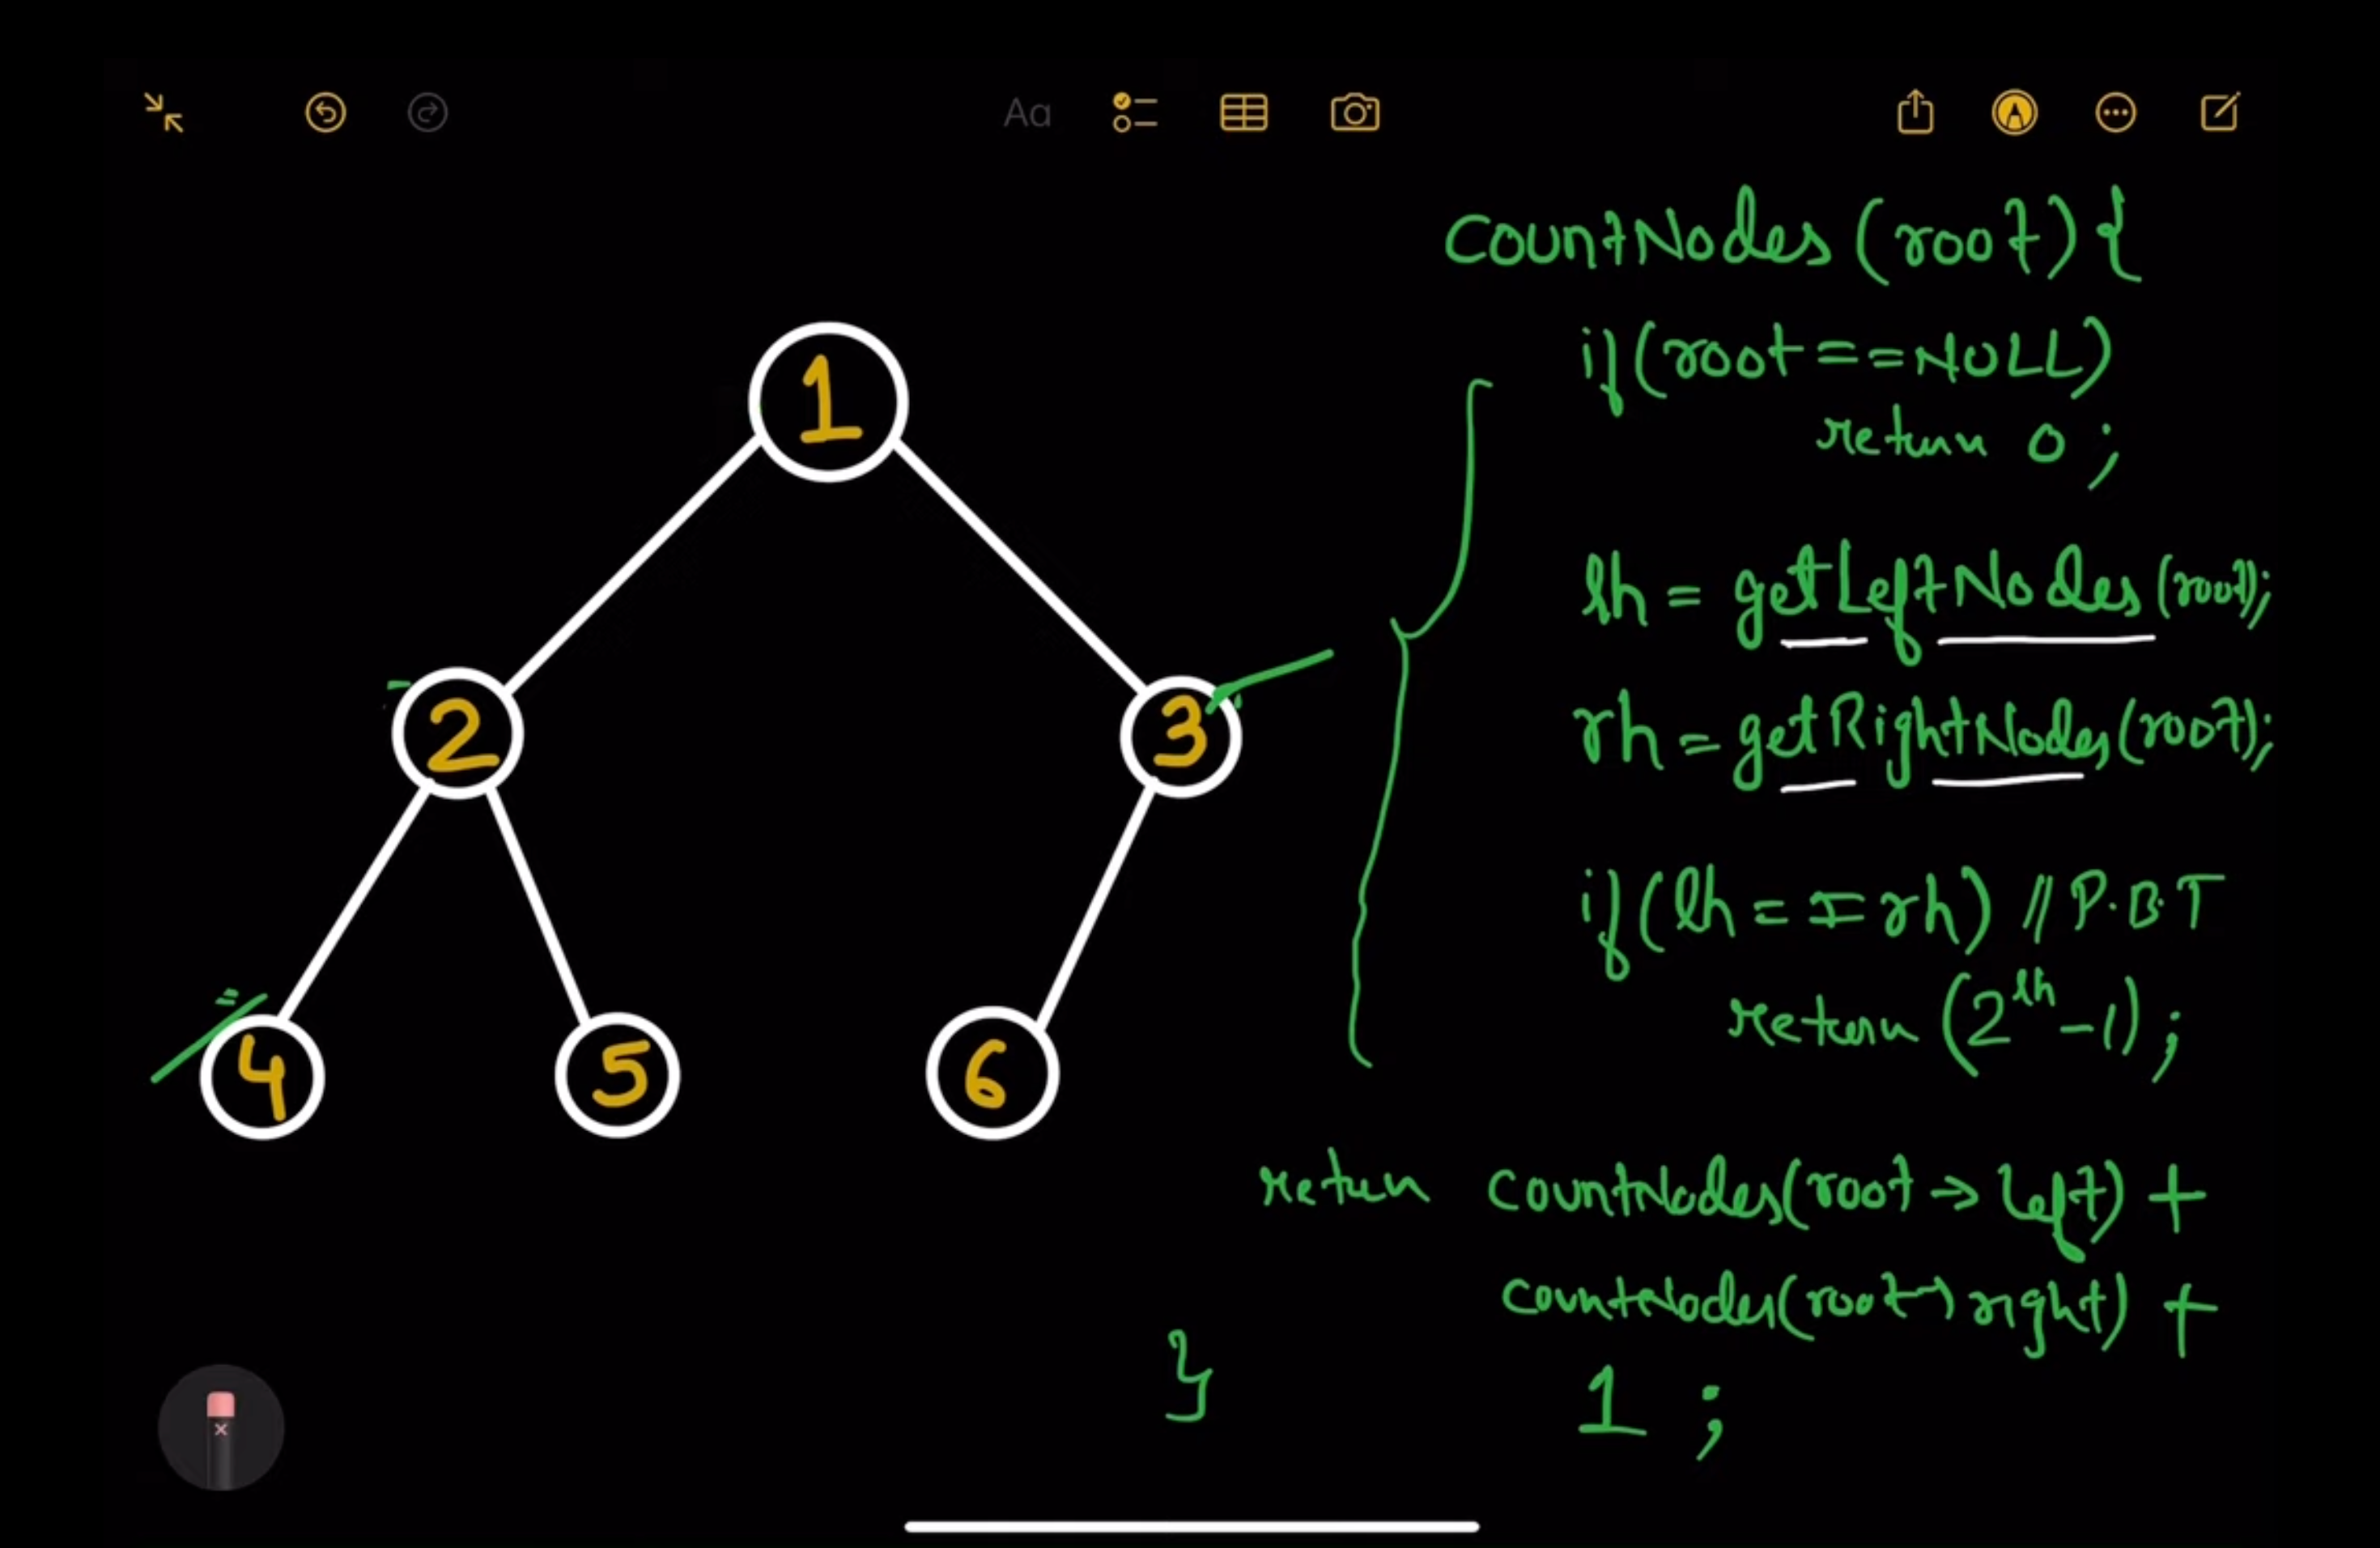 Aa
CountNodes (root) {
if (root == NULL)
return 0 ;
lh = getLeftNodes (root);
rh = getRightNodes (root);
if (lh == rh) // P.B.T
return (2^lh - 1) ;
return countNodes(root → left) +
countNodes(root → right) +
1 ;
}
1
2
3
4
5
6